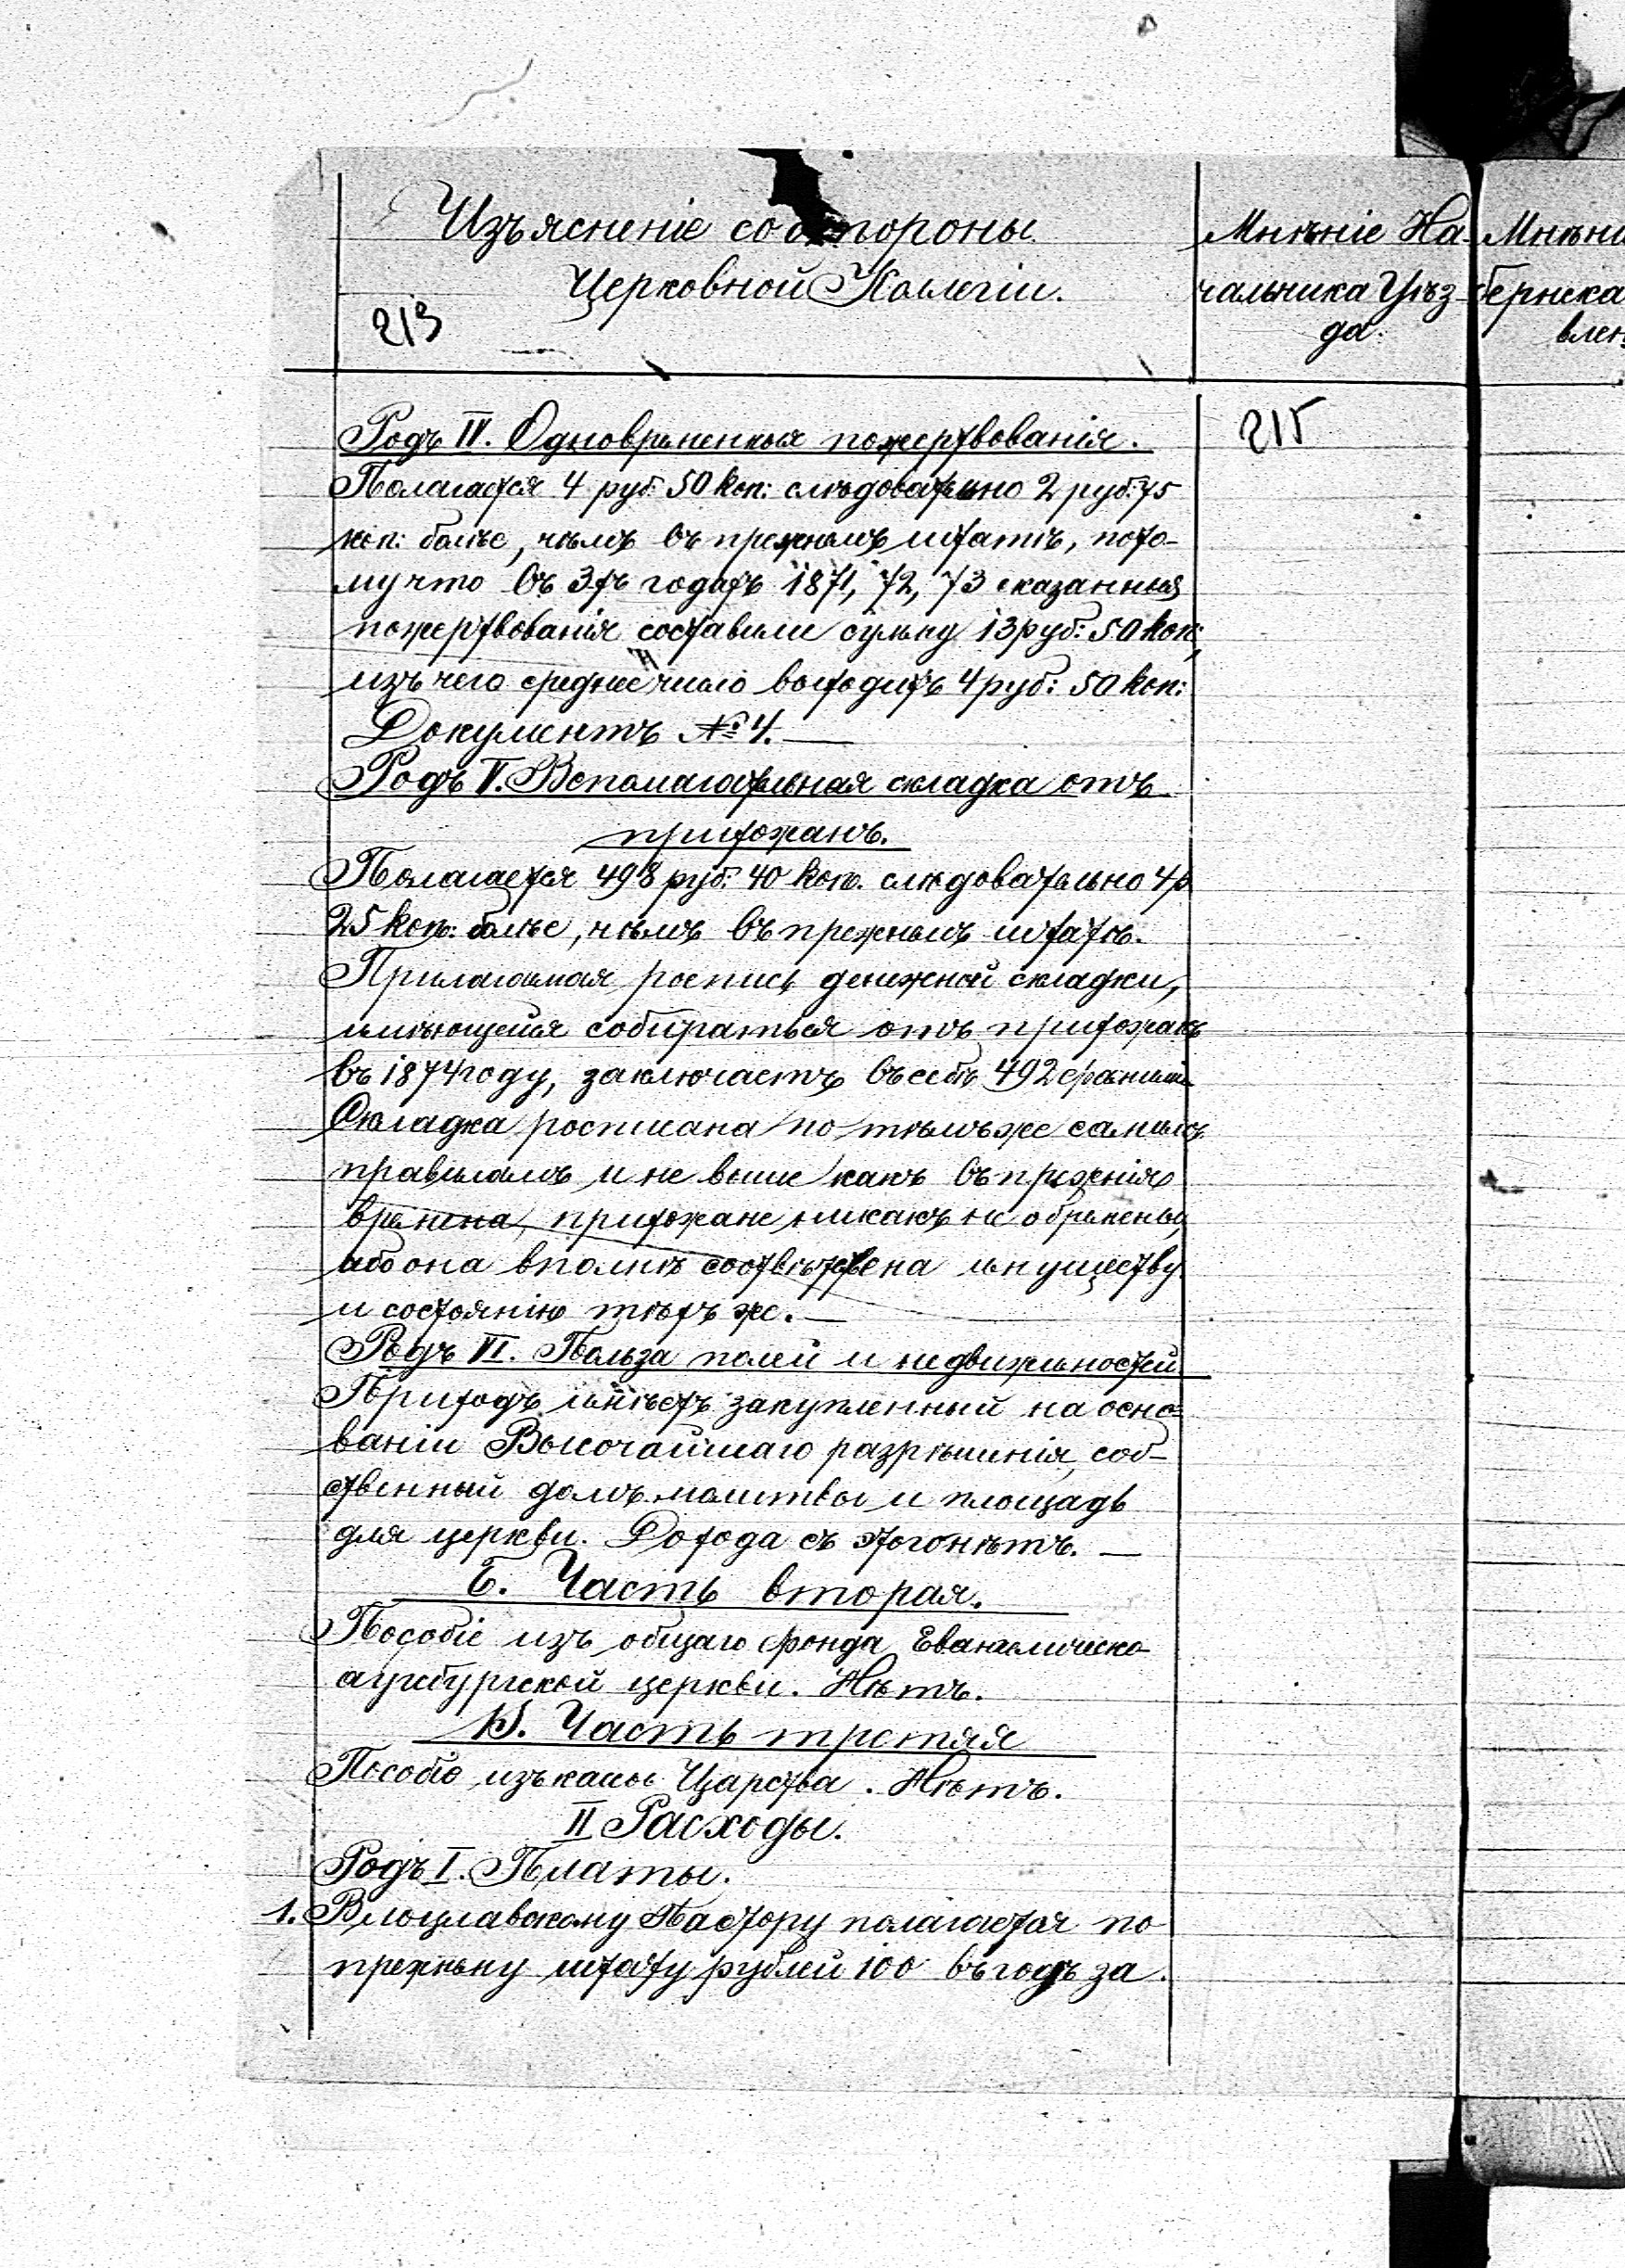 Изъясненіе со стороны
Церковной Коллегіи.
213
Мнѣніе На-
чальника Уѣз-
да.
Мнѣні
бернска
влен
215
Родъ IV. Одновременныя пожертвованія.
Полагается 4 руб: 50 коп: слѣдовательно 2 руб: 75
коп: болѣе, чѣмъ въ прежнемъ штатѣ, пото-
му что въ 3хъ годахъ 1871, 72, 73 сказанныя
пожертвованія составили сумму 13 руб: 50 коп:,
изъ чего среднее число выходитъ 4 руб: 50 коп:
Документъ № 4. —
Родъ V. Вспомагательная складка отъ
прихожанъ.
Полагается 498 руб: 40 коп. слѣдовательно 4 р
25 коп: болѣе, чѣмъ въ прежнемъ штатѣ.
Прилагаемая роспись денежной складки,
имѣющейся собираться отъ прихожанъ
въ 1874 году, заключаетъ въ себѣ 492
Складка росписана по тѣмъ же самымъ
правиламъ и не выше какъ въ прежнія
времена, прихожане никакъ не обременены,
ибо она вполнѣ имуществу
и состоянію тѣхъ же. —
Родъ VI. Польза полей и недвижимостей
Приходъ имѣетъ закупленный на осно-
ваніи Высочайшаго разрѣшенія, соб-
ственный домъ молитвы и площадь
для церкви. Дохода съ этого нѣтъ. —
Б. Часть вторая.
Пособіе изъ общаго фонда Евангелическо-
аугсбургской церкви. Нѣтъ.
В. Часть третяя
Пособіе изъ касы Царства. Нѣтъ.
II Расходы.
Родъ I. Платы.
1. Влоцлавскому Пастору полагается по
прежнему штату рублей 100 въ годъ за.